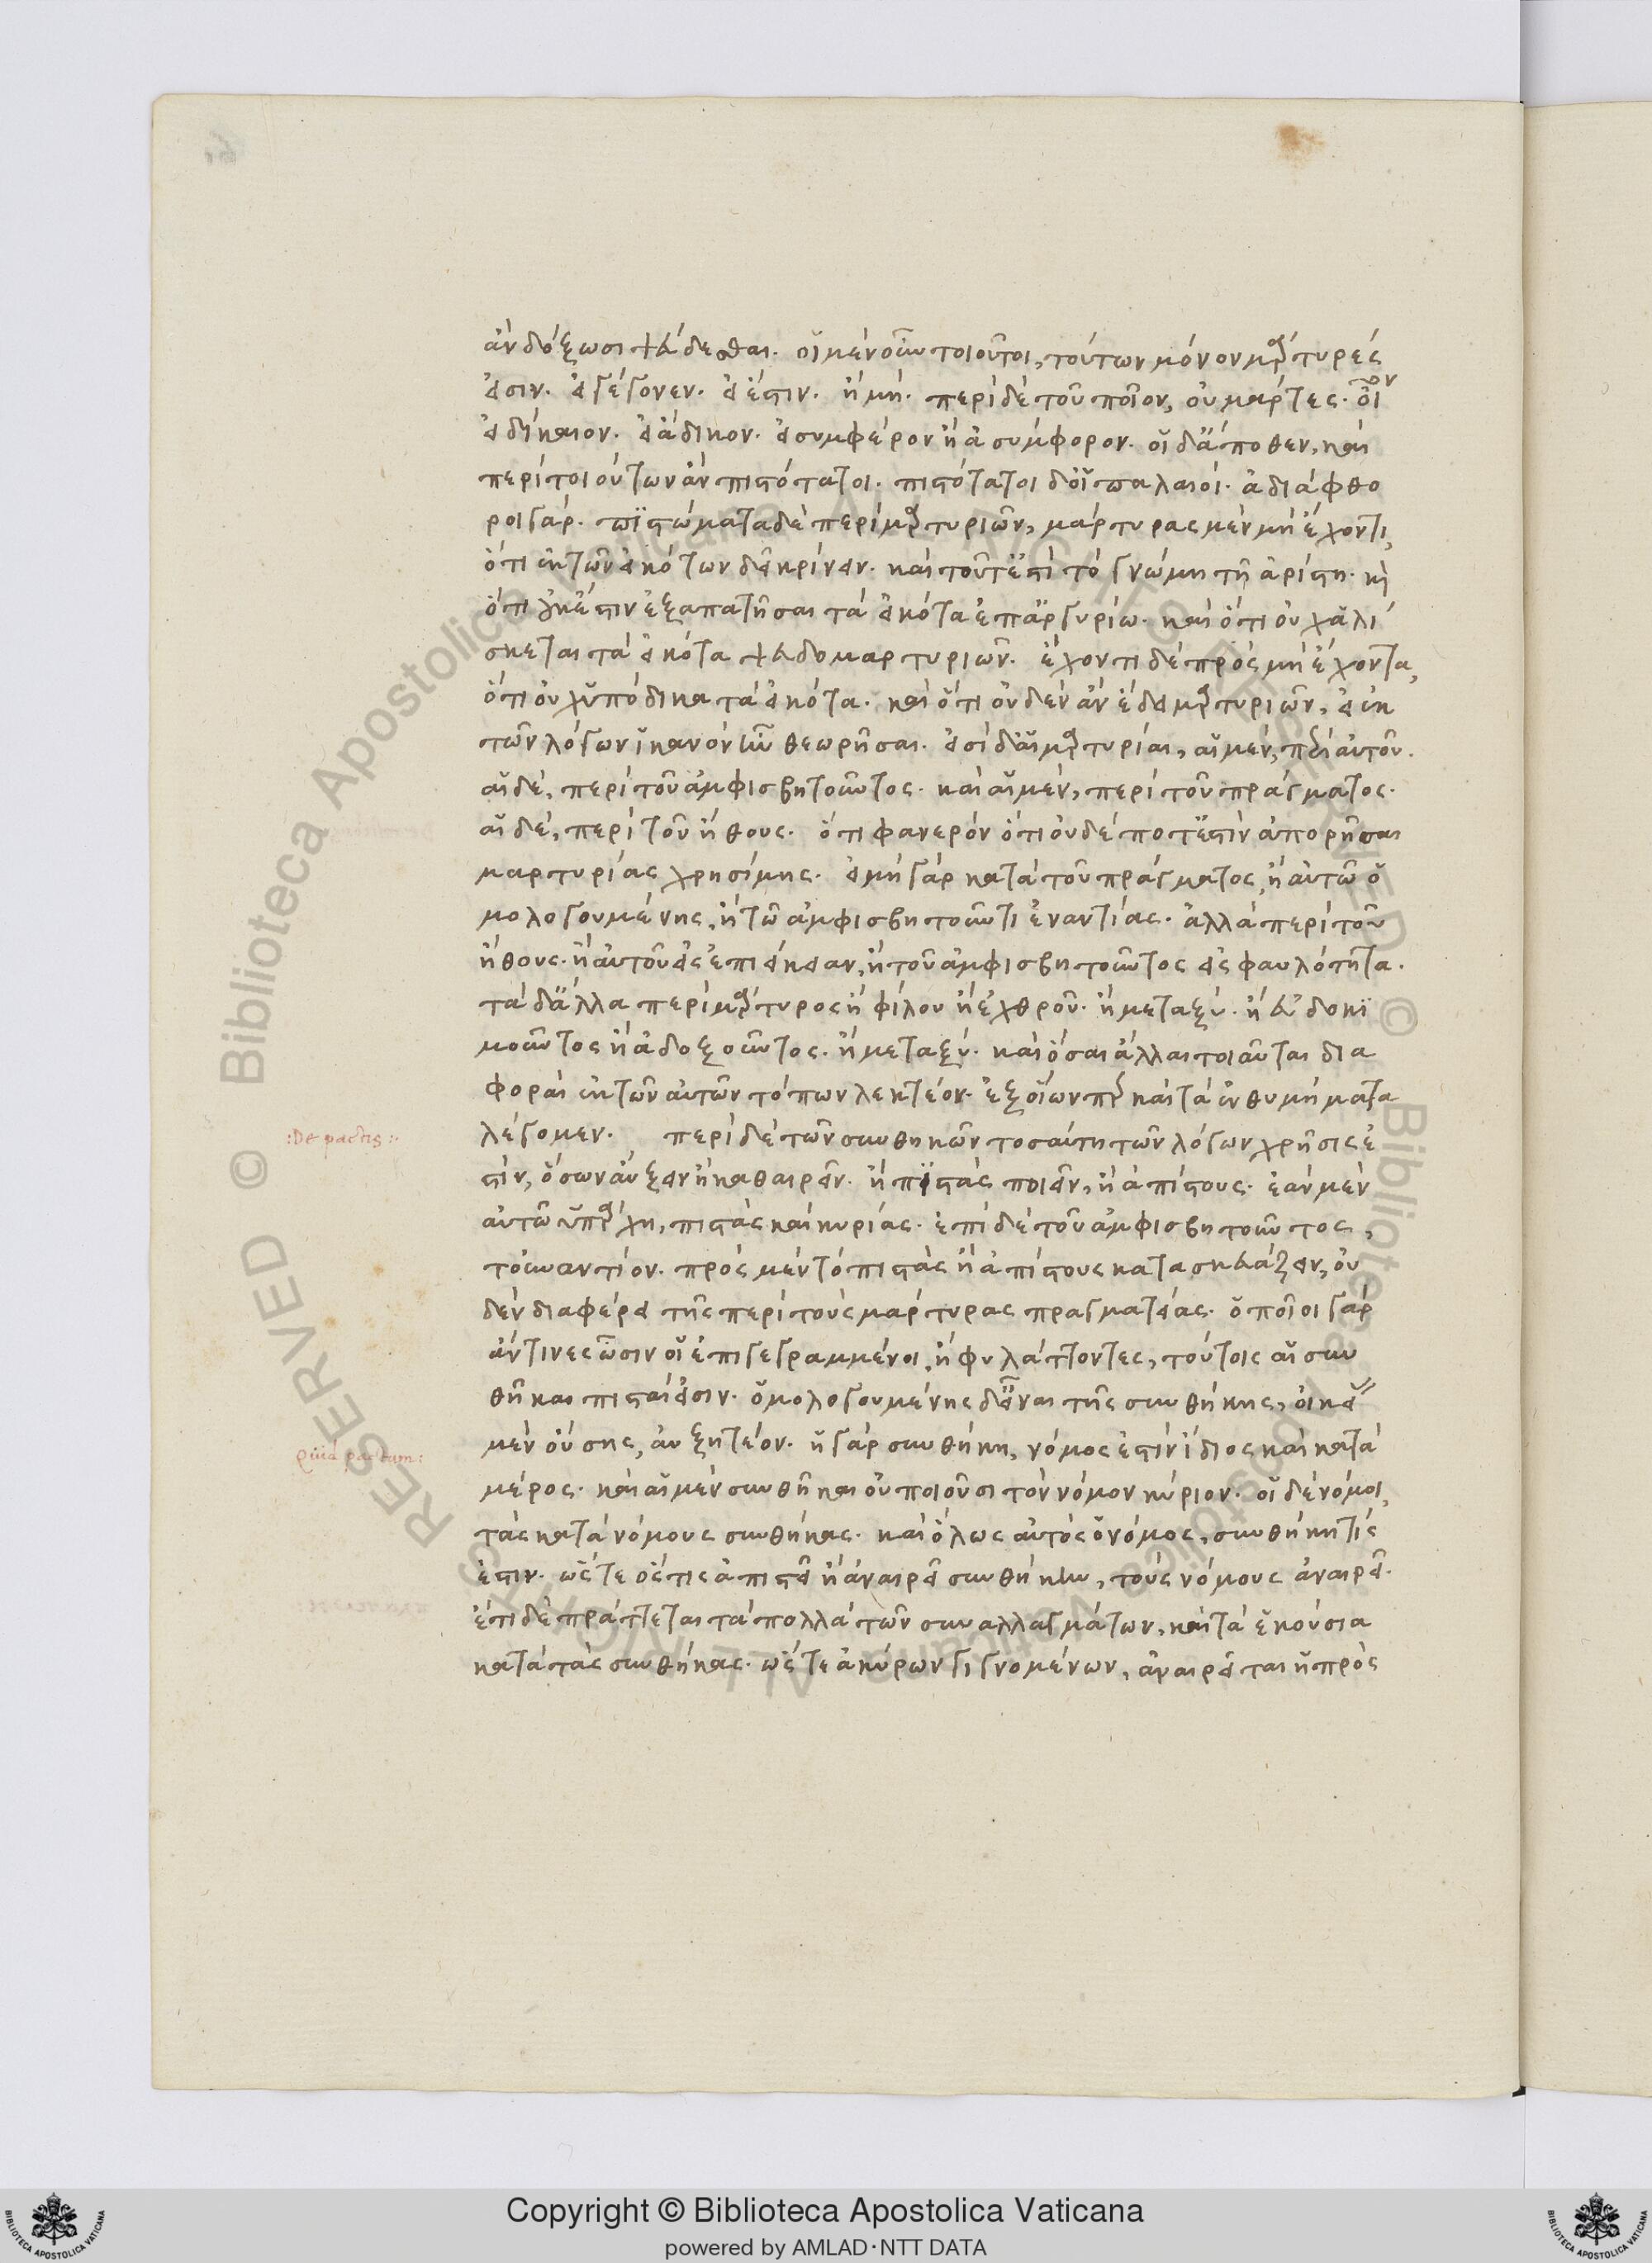 ἂν δόξωσι ψεύδεσθαι. οἱ μὲν οὖν τοιοῦτοι, τούτων μόνον μάρτυρές
εἰσιν. εἰ γέγονεν. εἰ ἔστιν. ἢ μή. περὶ δὲ τοῦ ποῖον, οὐ μάρτυρες. οἷον
εἰ δίκαιον. εἰ ἄδικον. εἰ συμφέρον ἢ ἀσύμφορον. οἱ δ' ἄποθεν, καὶ
περὶ τοιούτων ἂν πιστότατοι. πιστότατοι δ' οἱ παλαιοί. ἀδιάφθο
ροι γάρ. πιστώματα δὲ περὶ μαρτυριῶν, μάρτυρας μὲν μὴ ἔχοντι,
ὅτι ἐκ τῶν εἰκότων δεῖ κρίνειν. καὶ τοῦτ' ἔστι τὸ γνώμη τῇ ἀρίστῃ. καὶ
ὅτι οὐκ ἔστιν ἐξαπατῆσαι τὰ εἰκότα ἐπ' ἀργυρίω. καὶ ὅτι οὐχ ἁλί
σκεται τὰ εἰκότα ψευδομαρτυριῶν. ἔχοντι δὲ πρὸς μὴ ἔχοντα,
ὅτι οὐχ ὑπόδικα τὰ εἰκότα. καὶ ὅτι οὐδὲν ἂν ἔδει μαρτυριῶν, εἰ ἐκ
τῶν λόγων ἱκανὸν ἦν θεωρῆσαι. εἰσὶ δ' αἱ μαρτυρίαι, αἱ μέν, περὶ αὐτοῦ.
αἱ δέ, περὶ τοῦ ἀμφισβητοῦντος. καὶ αἱ μέν, περὶ τοῦ πράγματος.
αἱ δέ, περὶ τοῦ ἤθους. ὅτι φανερὸν ὅτι οὐδέποτ' ἔστιν ἀπορῆσαι
μαρτυρίας χρησίμης. εἰ μὴ γὰρ κατὰ τοῦ πράγματος, ἢ αὐτῶ ὁ
μολογουμένης, ἢ τῶ ἀμφισβητοῦντι ἐναντίας. ἀλλὰ περὶ τοῦ
ἤθους. ἢ αὐτοῦ εἰς ἐπιείκειαν, ἢ τοῦ ἀμφισβητοῦντος εἰς φαυλότητα.
τὰ δ' ἄλλα περὶ μάρτυρος ἢ φίλου ἢ ἐχθροῦ. ἢ μεταξύ. ἢ εὐδοκι
μοῦντος ἢ ἀδοξοῦντος. ἢ μεταξύ. καὶ ὅσαι ἄλλαι τοιαῦται δια
φοραὶ ἐκ τῶν αὐτῶν τόπων λεκτέον. ἐξ οἵων περ καὶ τὰ ἐνθυμήματα
:De pactis:. λέγομεν. περὶ δὲ τῶν συνθηκῶν τοσαύτη τῶν λόγων χρῆσις ἐ
στίν, ὅσων αὔξειν ἢ καθαιρεῖν. ἢ πιστὰς ποιεῖν, ἢ ἀπίστους. ἐὰν μὲν
αὐτῶ ὑπάρχη, πιστὰς καὶ κυρίας. ἐπὶ δὲ τοῦ ἀμφισβητοῦντος,
τοὐναντίον. πρὸς μὲν τὸ πιστὰς ἢ ἀπίστους κατασκευάζειν, οὐ
δὲν διαφέρει τῆς περὶ τοὺς μάρτυρας πραγματείας. ὁποῖοι γὰρ
ἄν τινες ὦσιν οἱ ἐπιγεγραμμένοι, ἢ φυλάττοντες, τούτοις αἱ συν
θῆκαι πισταί εἰσιν. ὁμολογουμένης δ' εἶναι τῆς συνθήκης, οἰκεί
Quid pactum: μὲν οὔσης, αὐξητέον. ἡ γὰρ συνθήκη, νόμος ἐστὶν ἴδιος καὶ κατὰ
μέρος. καὶ αἱ μὲν συνθῆκαι οὐ ποιοῦσι τὸν νόμον κύριον. οἱ δὲ νόμοι,
τὰς κατὰ νόμους συνθήκας. καὶ ὅλως αὐτὸς ὁ νόμος, συνθήκη τίς
ἐστιν. ὥστε ὅστις ἀπιστεῖ ἢ ἀναιρεῖ συνθήκην, τοὺς νόμους ἀναιρεῖ.
ἔτι δὲ πράττεται τὰ πολλὰ τῶν συναλλαγμάτων, καὶ τὰ ἑκούσια
κατὰ τὰς συνθήκας. ὥστε ἀκύρων γιγνομένων, ἀναιρεῖται ἡ πρὸς
RESERVED © Biblioteca Apostolica Vaticana
Copyright © Biblioteca Apostolica Vaticana
powered by AMLAD·NTT DATA